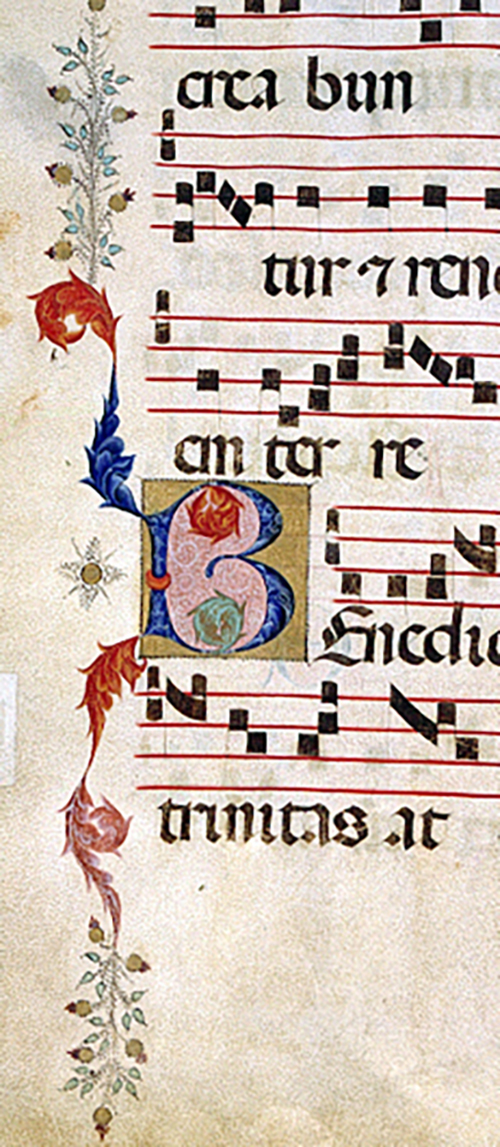 crea bun
tur ⁊ reno
an ter re
BEnedic
trinitas at